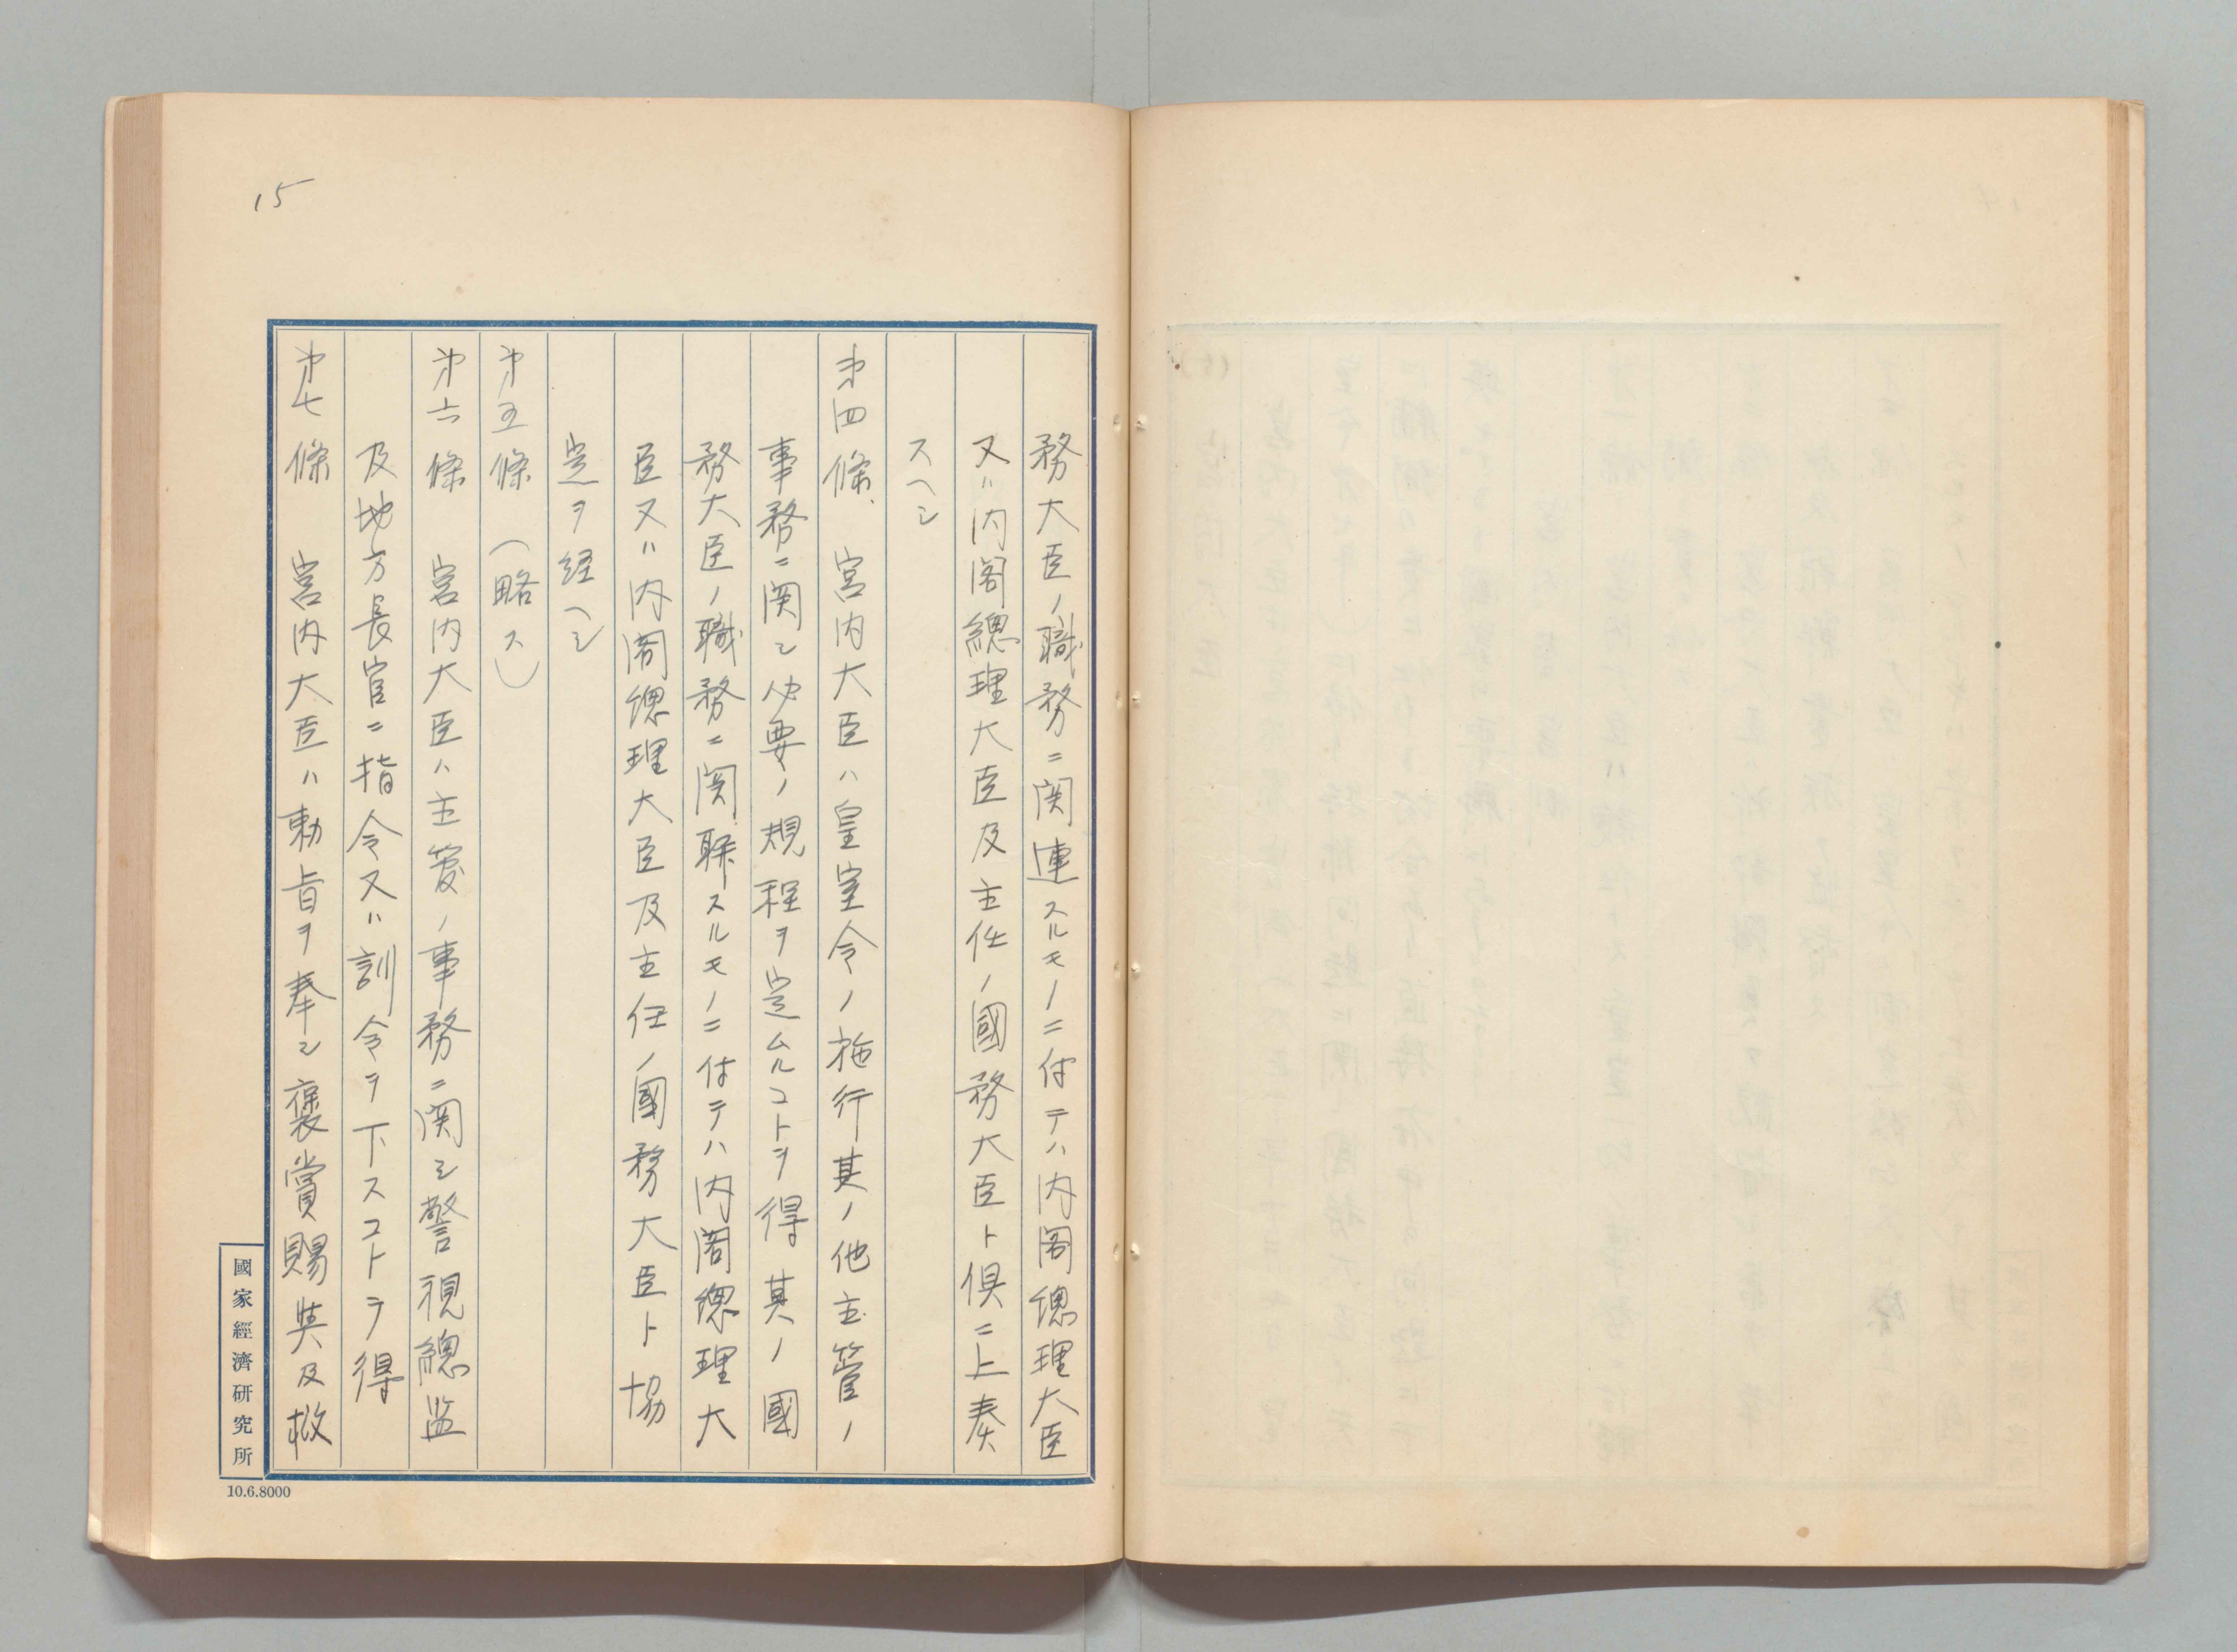 15
務大臣ノ職務ニ関連スルモノニ付テハ内閣總理大臣
又ハ内閣總理大臣及主任ノ國務大臣ト倶ニ上奏
スヘシ
第四條、宮内大臣ハ皇室令ノ施行其ノ他主管ノ
事務ニ関シ必要ノ規程ヲ定ムルコトヲ得其ノ國
務大臣ノ職務ニ関聯スルモノニ付テハ内閣總理大
臣又ハ内閣總理大臣及主任ノ國務大臣ト協
定ヲ経ヘシ
第五條（略ス）
第六條　宮内大臣ハ主管ノ事務ニ関シ警視總监
及地方長官ニ指令又ハ訓令ヲ下スコトヲ得
第七條　宮内大臣ハ勅旨ヲ奉シ褒賞賜與及救
國家經濟研究所
10.6.8000